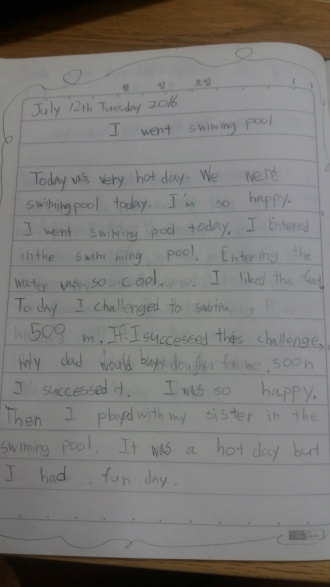 월 일 요일
July 12th Tuesday 2016
I went swiming pool
Today was very hot day. We went
swiming pool today. I'm so happy.
I went swiming pool today. I Entered
in the swimming pool. Entering the
water was so cool. I liked the
Today I challenged to swim
500 m. If I successed this challenge,
My dad would buy for me, soon
I successed it. I was so happy.
Then I played with my sister in the
swiming pool. It was a hot day but
I had.. fun day.